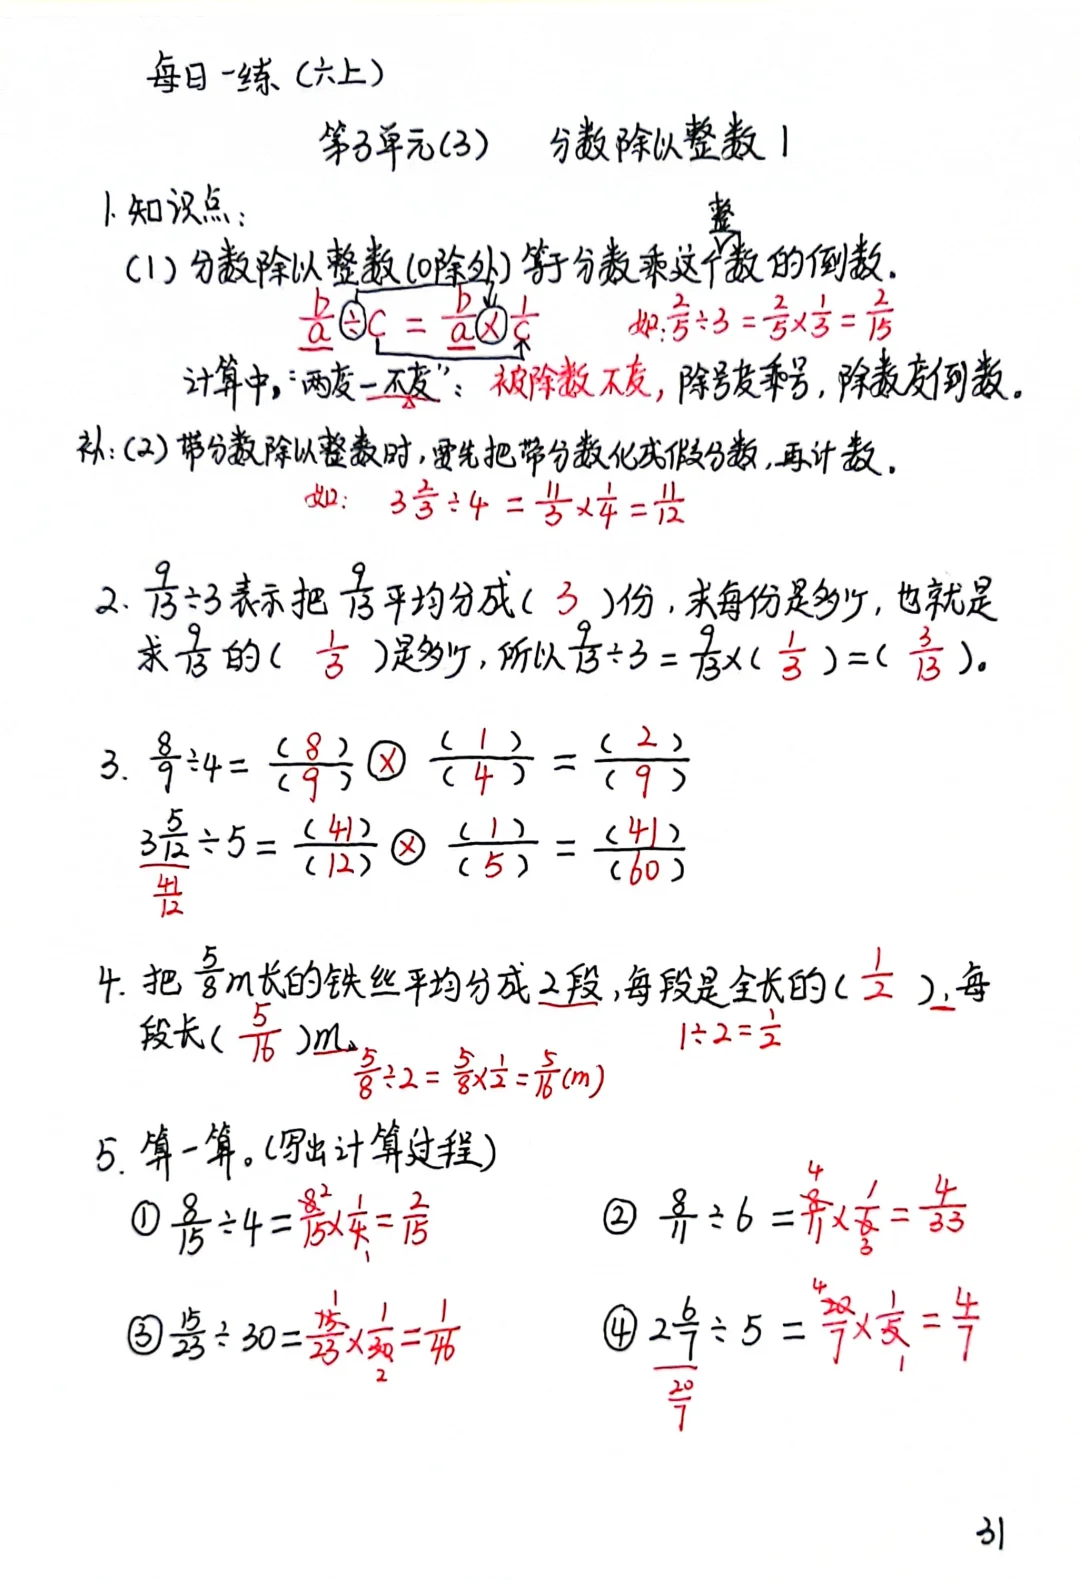 每日一练(六上)
第3单元(3) 分数除以整数1
1.知识点:
整
(1)分数除以整数(0除外)等于分数乘这个数的倒数.
b/a÷c=b/a×1/c 如:2/5÷3=2/5×1/3=2/15
计算中,"两变一不变":被除数不变,除号变乘号,除数变倒数。
补:(2)带分数除以整数时,要先把带分数化成假分数,再计数.
如: 3 2/3÷4=11/3×1/4=11/12
2. 9/13÷3表示把9/13平均分成(3)份,求每份是多少,也就是
求9/13的(1/3)是多少,所以9/13÷3=9/13×(1/3)=(3/13)。
3. 8/9÷4=(8)/(9)×(1)/(4)=(2)/(9)
3 5/12÷5=(41)/(12)×(1)/(5)=(41)/(60)
41/12
4. 把5/8m长的铁丝平均分成2段,每段是全长的(1/2),每
段长(5/16)m。 1÷2=1/2
5/8÷2=5/8×1/2=5/16(m)
5. 算一算。(写出计算过程)
2 4
①8/15÷4=8/15×1/4=2/15 ②8/11÷6=8/11×1/6=4/33
1 3
1 4
③15/23÷30=15/23×1/30=1/46 ④2 6/7÷5=20/7×1/5=4/7
2 1
20/7
31